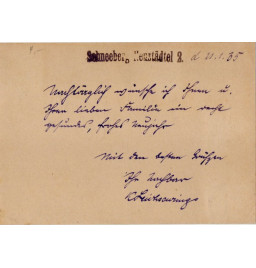 Schneeberg Neustädtel 2. d. 20.1.35
Nachträglich wünsche ich Ihnen u.
Ihrer lieben Familie ein recht
gesundes, frohes Neujahr
Mit den besten Grüßen
Ihr Nachbar